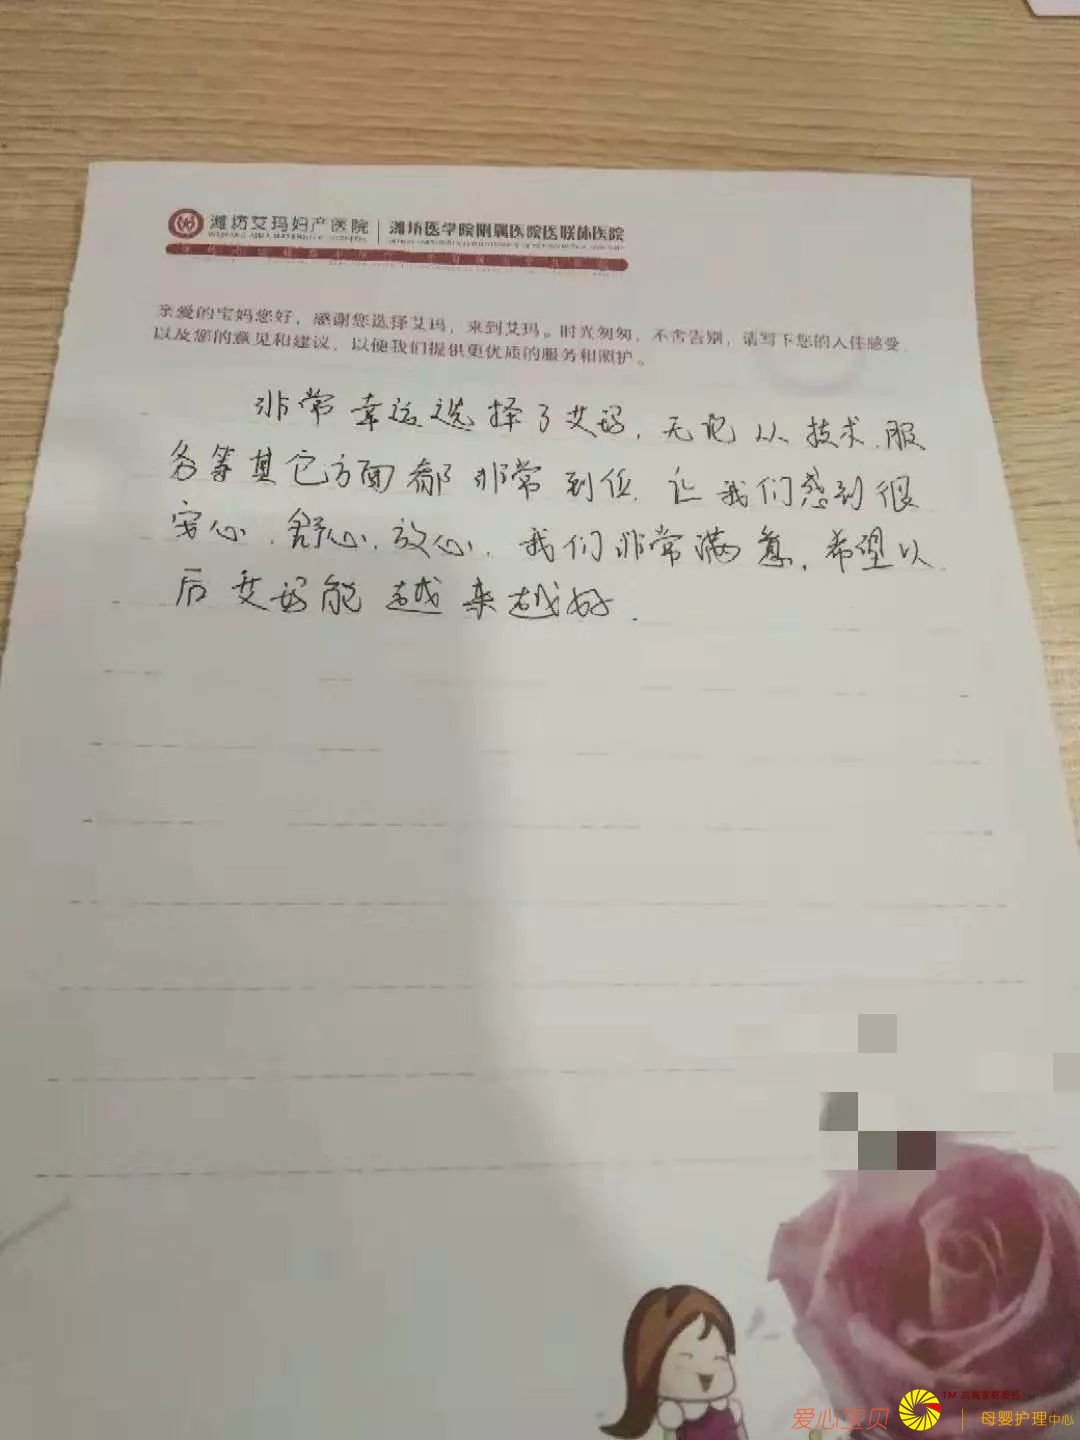 潍坊艾玛妇产医院 潍坊医学院附属医院医联体医院
亲爱的宝妈您好，感谢您选择艾玛，来到艾玛。时光匆匆，不舍告别，请写下您的入住感受
以及您的意见和建议，以便我们提供更优质的服务和照护。
非常幸运选择了艾玛，无论从技术、服
务等其它方面都非常到位，让我们感到很
安心、舒心、放心，我们非常满意，希望以
后艾妈能越来越好.
爱心宝贝 TM 高端家庭服务 | 母婴护理中心